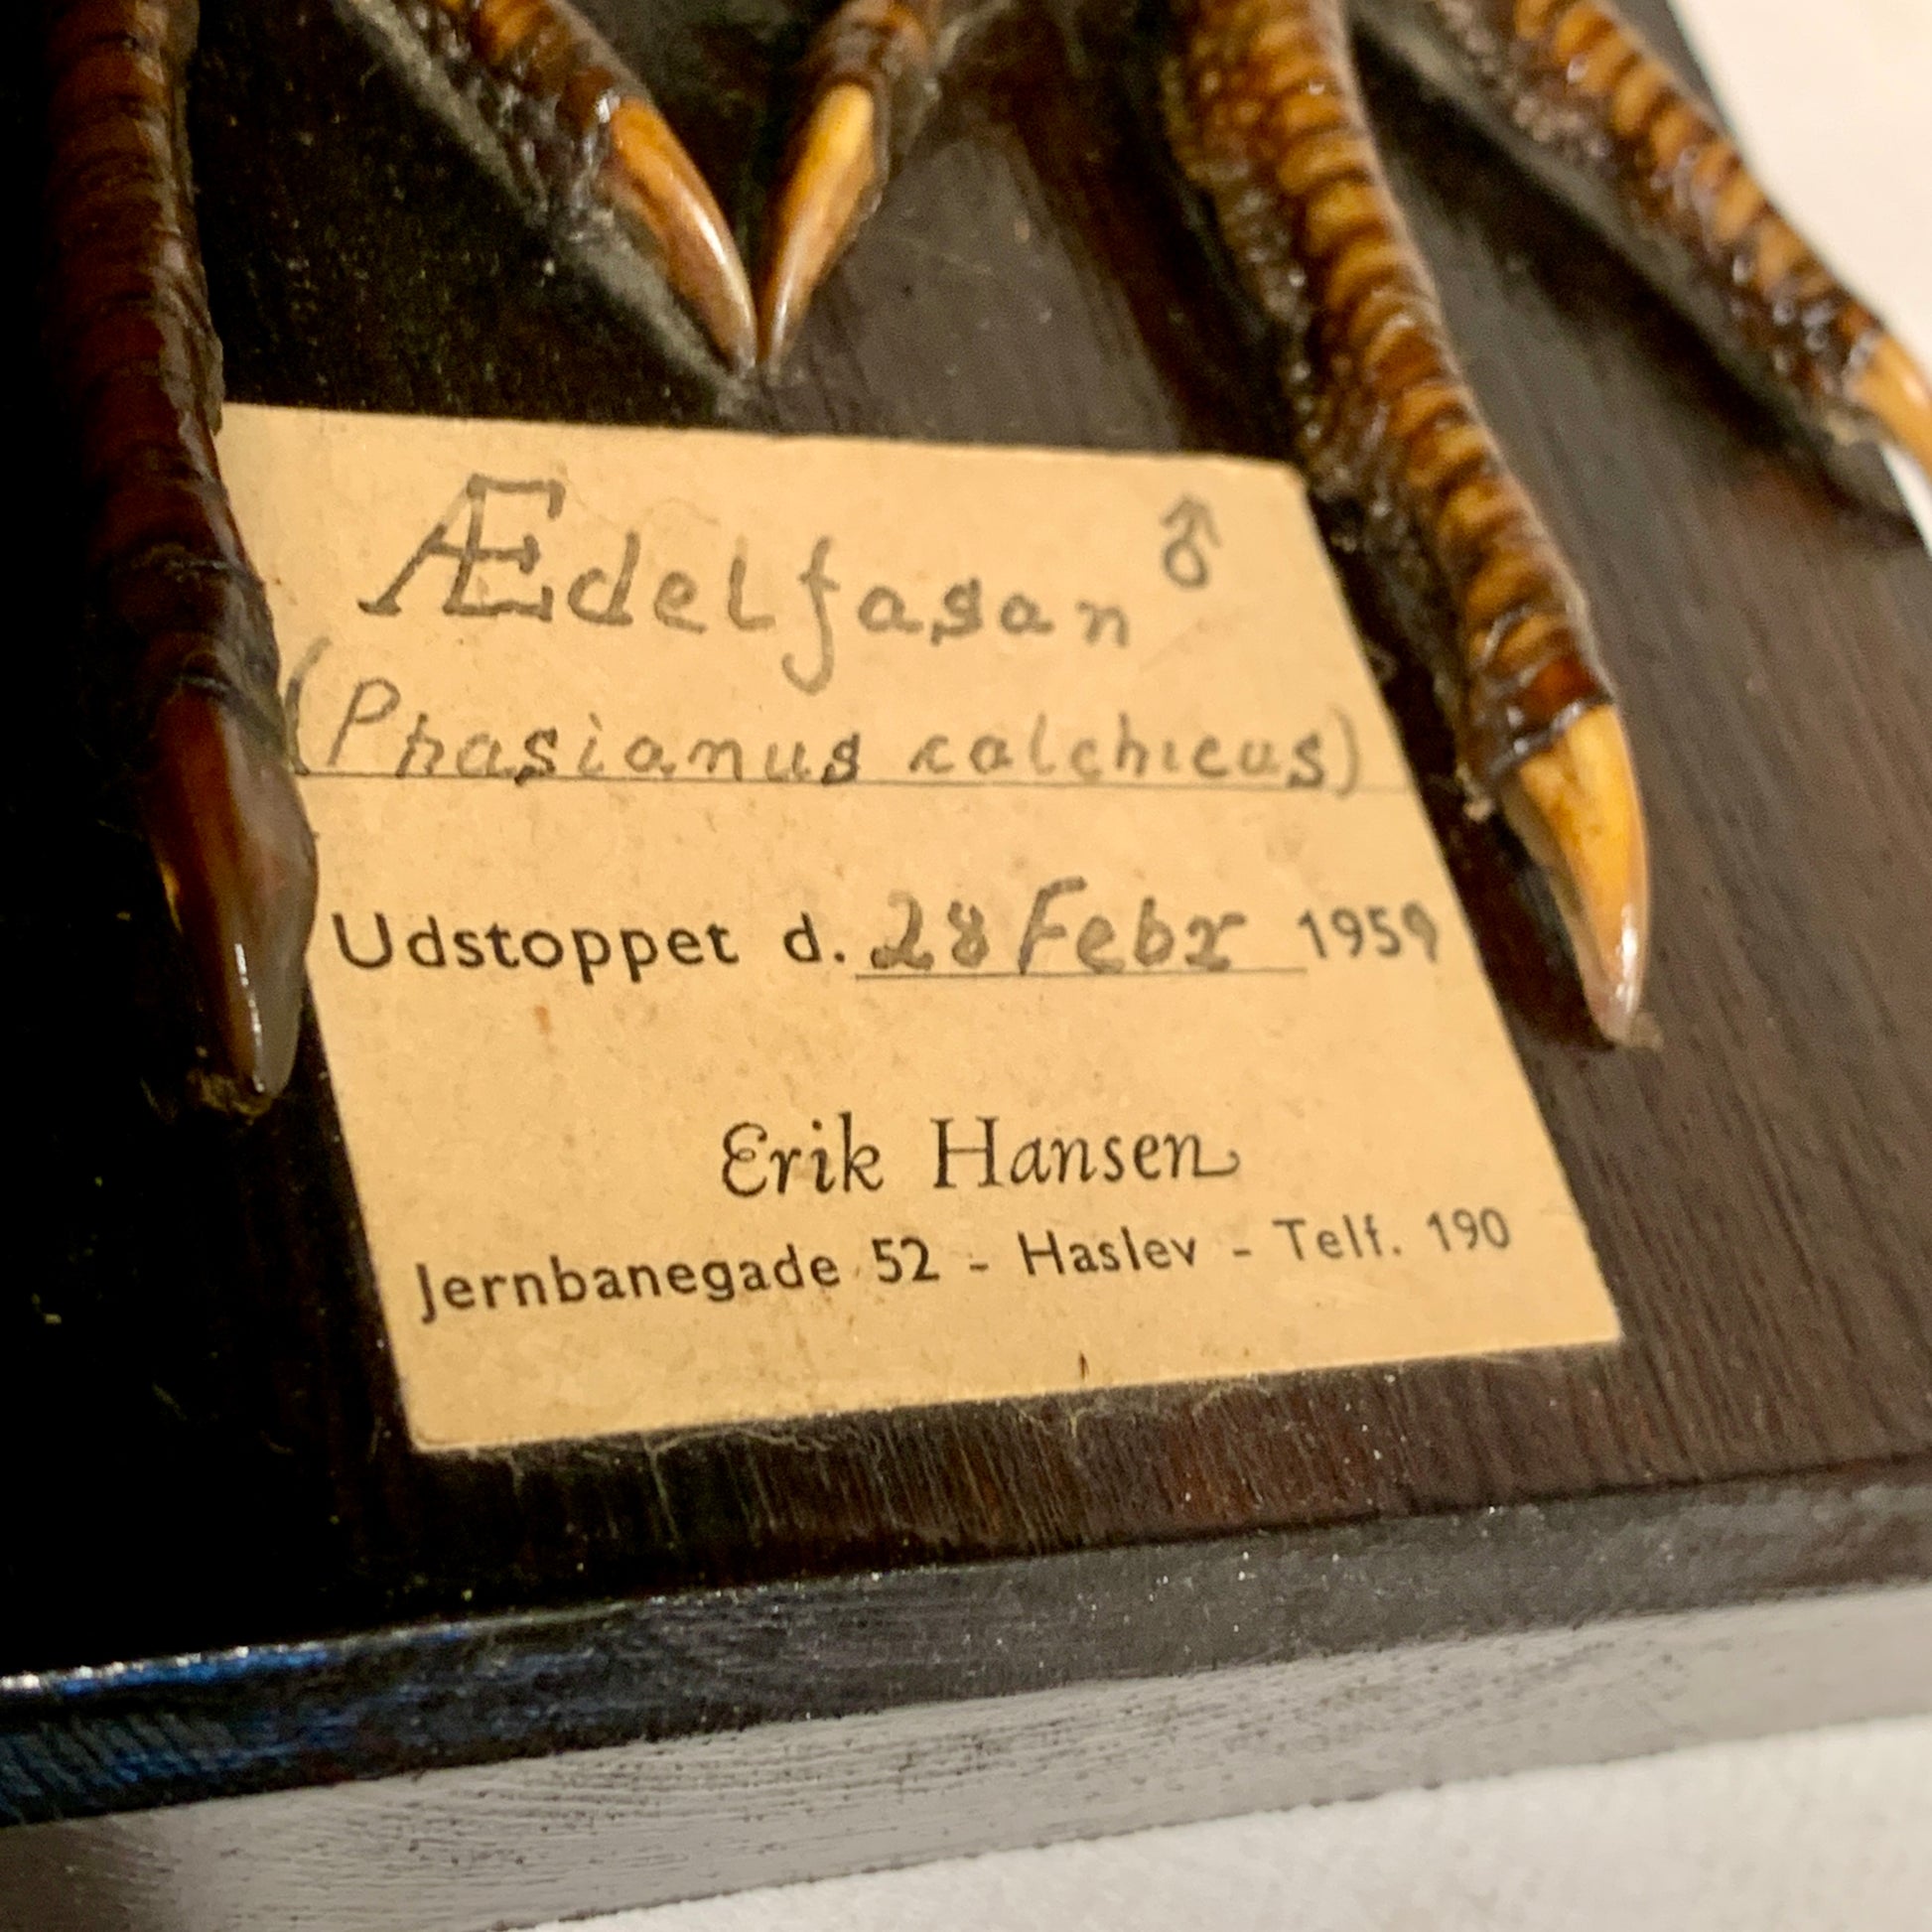 Ædelfasan ♂
(Phasianus calchicus)
Udstoppet d. 28 Febr 1959
Erik Hansen
Jernbanegade 52 - Haslev - Telf. 190